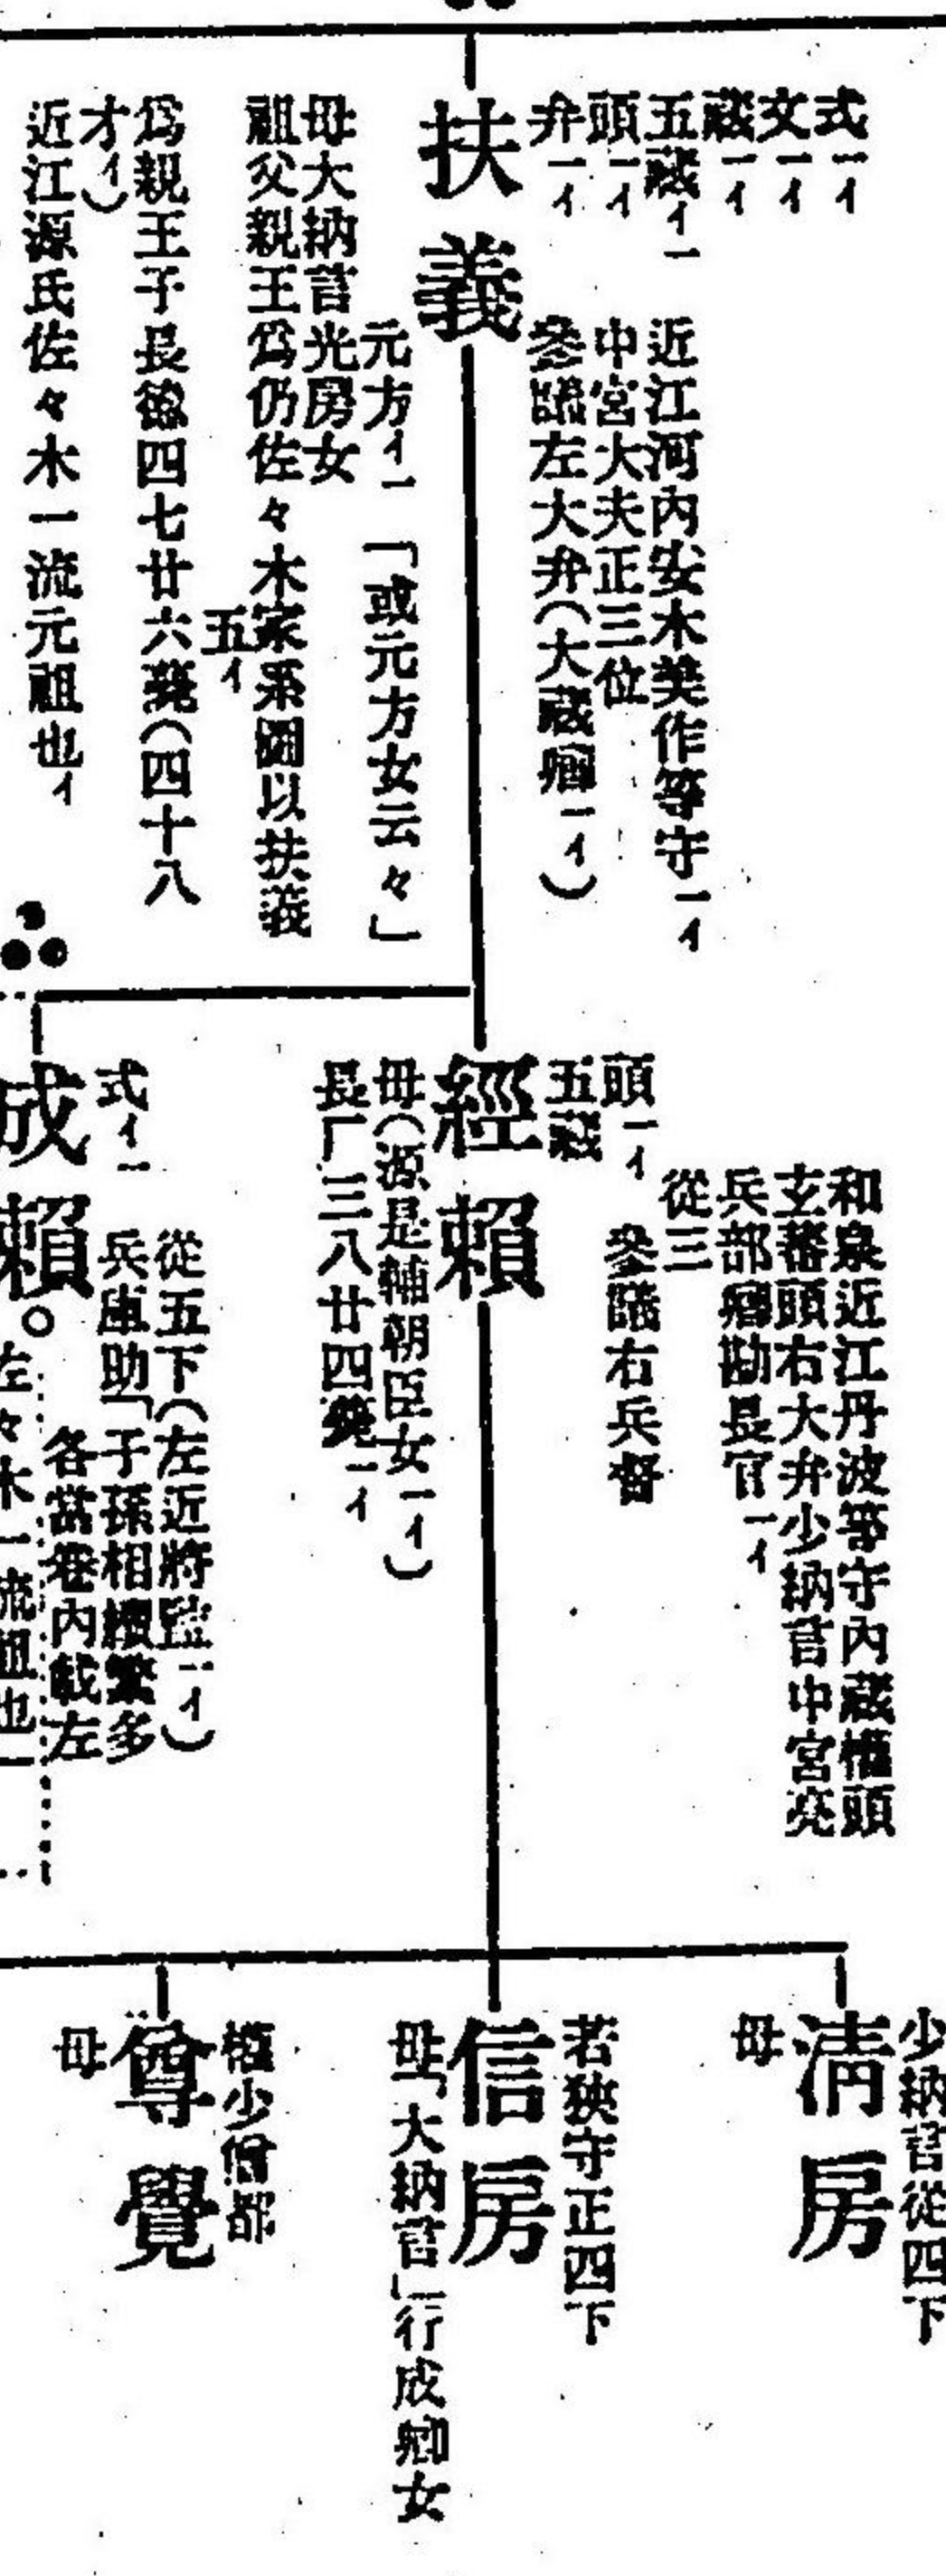 式一イ
文一イ
蔵一イ
五蔵イ一
頭一イ
弁一イ
近江河内安木美作等守一イ
中宮大夫正三位
参議左大弁(大蔵卿一イ)
扶義
元方イ一「或元方女云々」
母大納言光房女
祖父親王為仍佐々木家系図以扶義
五イ
為親王子長徳四七廿六薨(四十八
才イ)
近江源氏佐々木一流元祖也イ
和泉近江丹波等守内蔵権頭
玄蕃頭右大弁少納言中宮亮
兵部卿勘長官一イ
従三
頭一イ
参議右兵督
五蔵
經賴
母(源是輔朝臣女一イ)
長厂三八廿四薨一イ
式イ一
従五下(左近将監一イ)
兵庫助「子孫相続繁多
各当巻内載左
成賴。
左々木一流祖也
少納言従四下
淸房
母
若狭守正四下
信房
母「大納言」行成卿女
権少僧都
尊覺
母